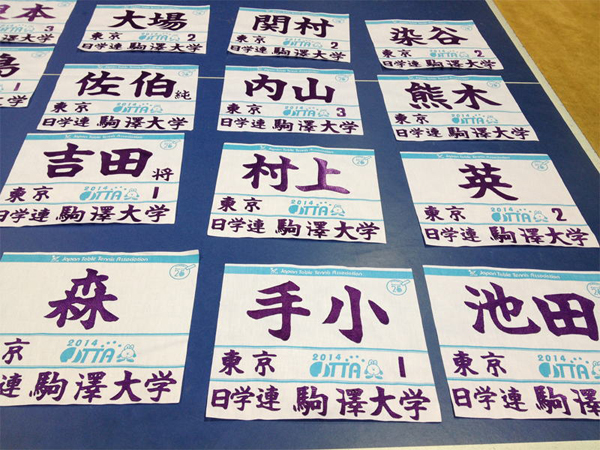 本
3
大場
東京 2014 JTTA 2
日学連 駒澤大学
関村
東京 2014 JTTA 2
日学連 駒澤大学
染谷
東京 2014 JTTA 2
日学連 駒澤大学
島
1
佐伯純
東京 2014 JTTA
日学連 駒澤大学
内山
東京 2014 JTTA 3
日学連 駒澤大学
熊木
東京 2014 JTTA
日学連 駒澤大学
Japan Table Tennis Association
吉田将
東京 2014 JTTA 1
日学連 駒澤大学
村上
東京 2014 JTTA
日学連 駒澤大学
Japan Table Tennis Association
英
東京 2014 JTTA 2
日学連 駒澤大学
Japan Table Tennis Association
森
京 2014 JTTA
連 駒澤大学
Japan Table Tennis Association
手小
東京 2014 JTTA 1
日学連 駒澤大学
Japan Table Tennis Association
池田
東京 2014 JTTA
日学連 駒澤大学